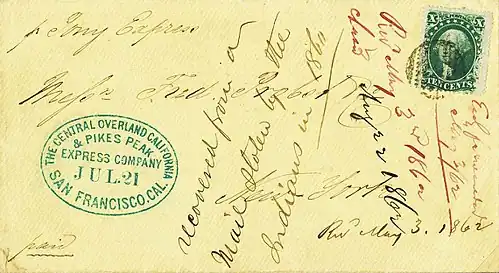 p Pony Express
Messrs Fred
New York
paid
THE CENTRAL OVERLAND CALIFORNIA
& PIKES PEAK
EXPRESS COMPANY
JUL. 21
SAN FRANCISCO, CAL.
recovered from a
Mail stolen by the
Indians in 1860
Recd May 3rd 1862
May 22 1862
Recd May 3. 1862
X
X
TEN CENTS.